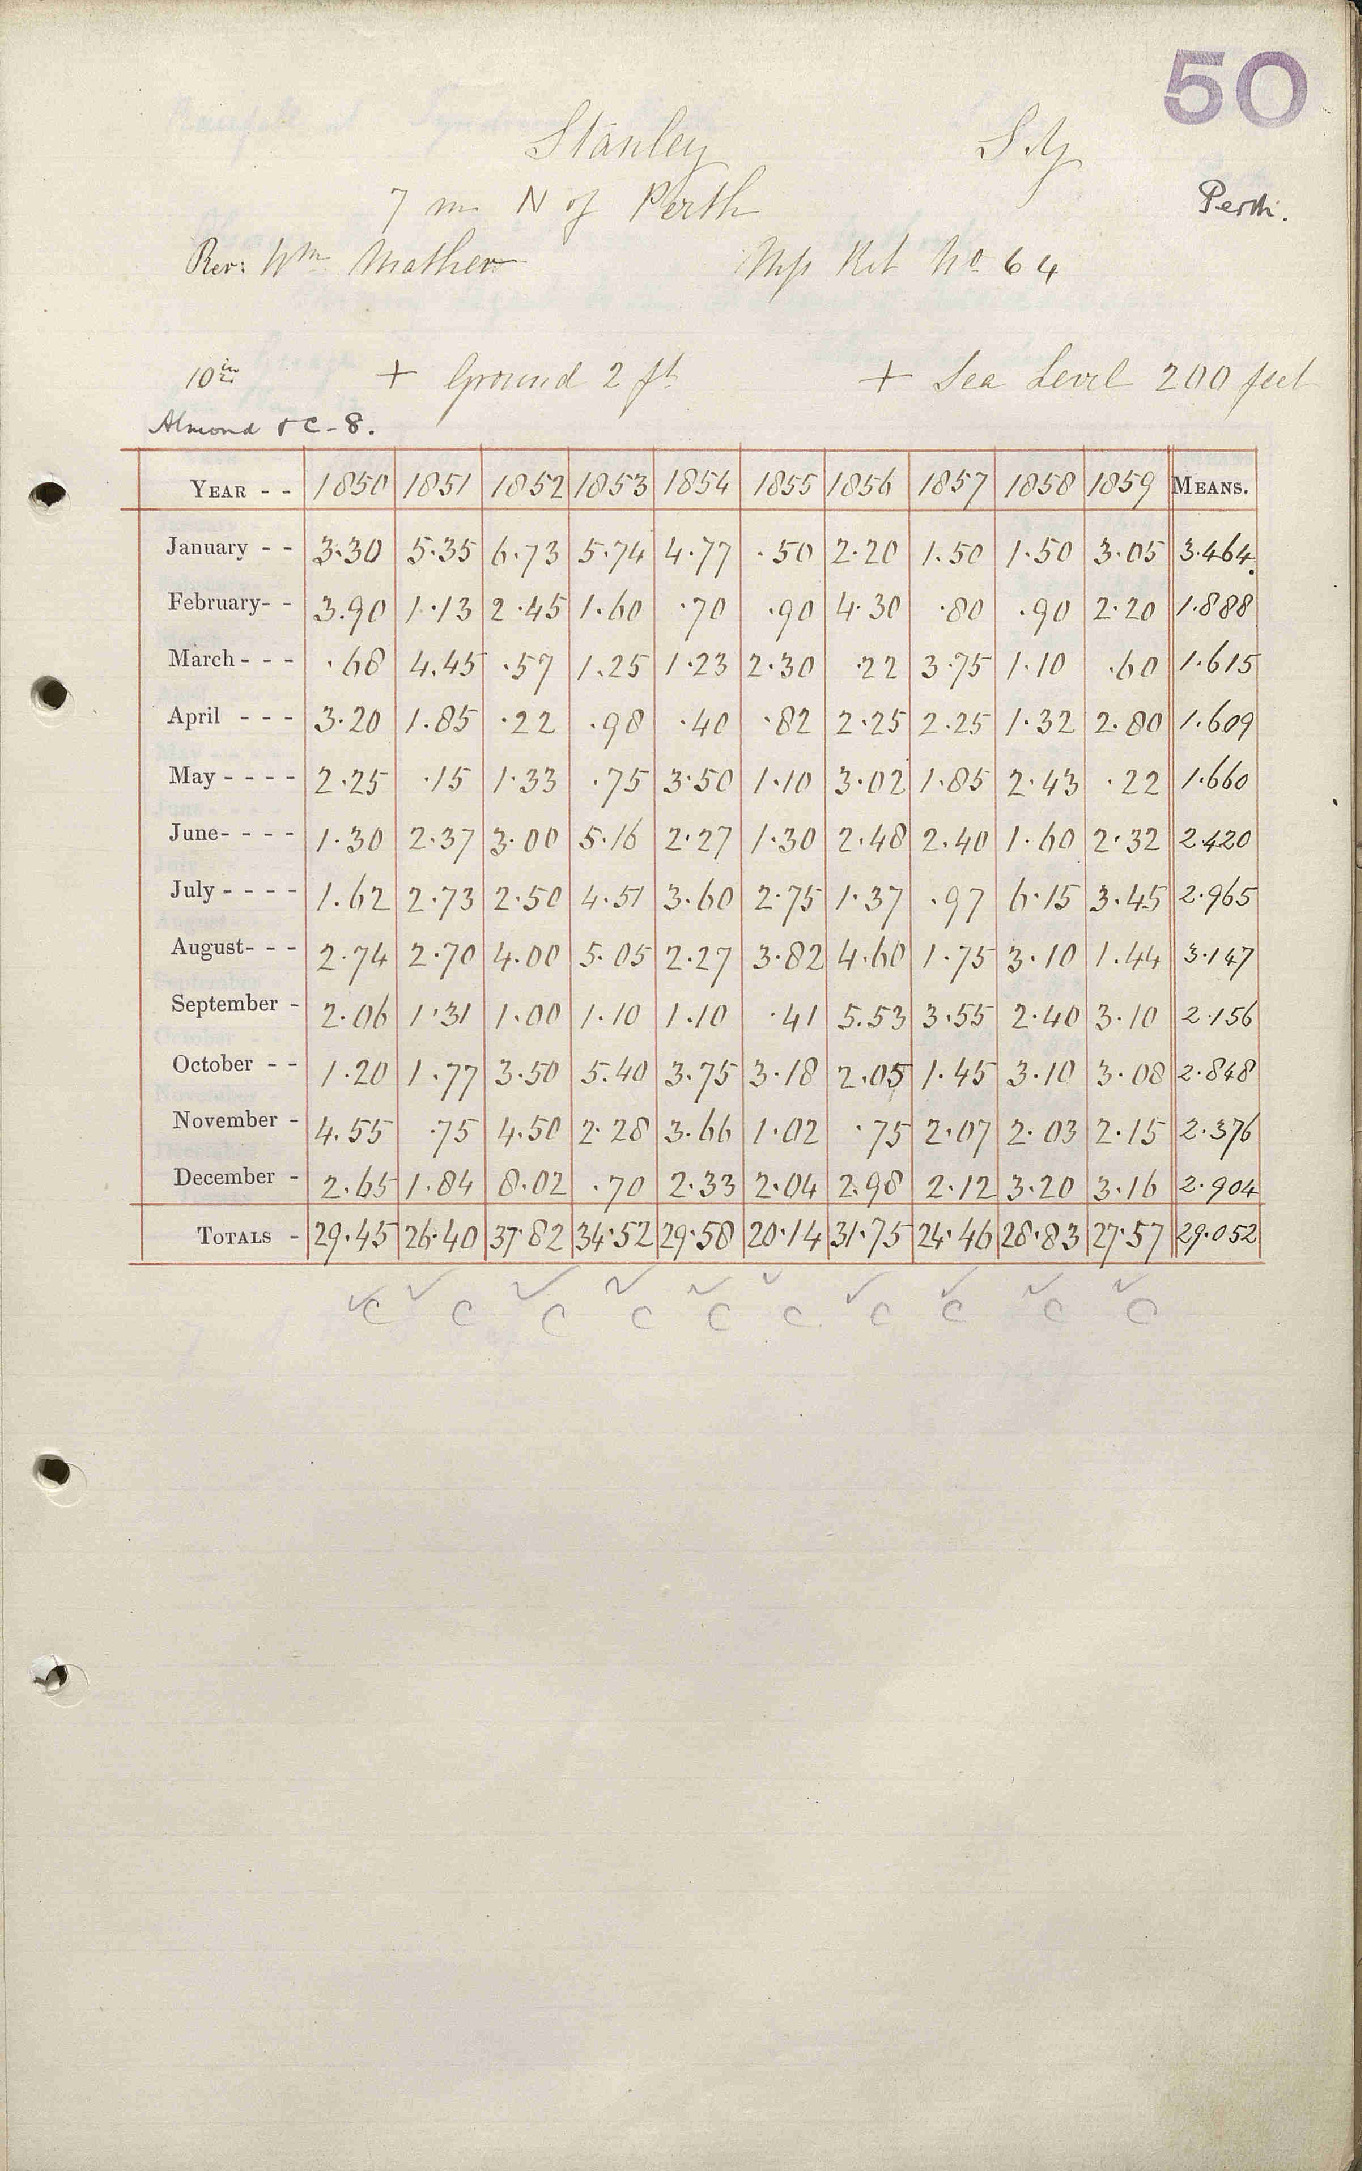 50
Stanley
7 m N of Perth
Perth.
Rev: Wm Mather
No 64
10in + Ground 2 ft + Sea Level 200 feet
Almond &c - 8.
YEAR - - 1850 1851 1852 1853 1854 1855 1856 1857 1858 1859 MEANS.
January - - 3.30 5.35 6.73 5.74 4.77 .50 2.20 1.50 1.50 3.05 3.464
February- - 3.90 1.13 2.45 1.60 .70 .90 4.30 .80 .90 2.20 1.888
March - - - .68 4.45 .57 1.25 1.23 2.30 .22 3.75 1.10 .60 1.615
April - - - 3.20 1.85 .22 .98 .40 .82 2.25 2.25 1.32 2.80 1.609
May - - - - 2.25 .15 1.33 .75 3.50 1.10 3.02 1.85 2.43 .22 1.660
June- - - - 1.30 2.37 3.00 5.16 2.27 1.30 2.48 2.40 1.60 2.32 2.420
July - - - - 1.62 2.73 2.50 4.51 3.60 2.75 1.37 .97 6.15 3.45 2.965
August- - - 2.74 2.70 4.00 5.05 2.27 3.82 4.60 1.75 3.10 1.44 3.147
September - 2.06 1.31 1.00 1.10 1.10 .41 5.53 3.55 2.40 3.10 2.156
October - - 1.20 1.77 3.50 5.40 3.75 3.18 2.05 1.45 3.10 3.08 2.848
November - 4.55 .75 4.50 2.28 3.66 1.02 .75 2.07 2.03 2.15 2.376
December - 2.65 1.84 8.02 .70 2.33 2.04 2.98 2.12 3.20 3.16 2.904
TOTALS - 29.45 26.40 37.82 34.52 29.58 20.14 31.75 24.46 28.83 27.57 29.052
C C C C C C C C C C